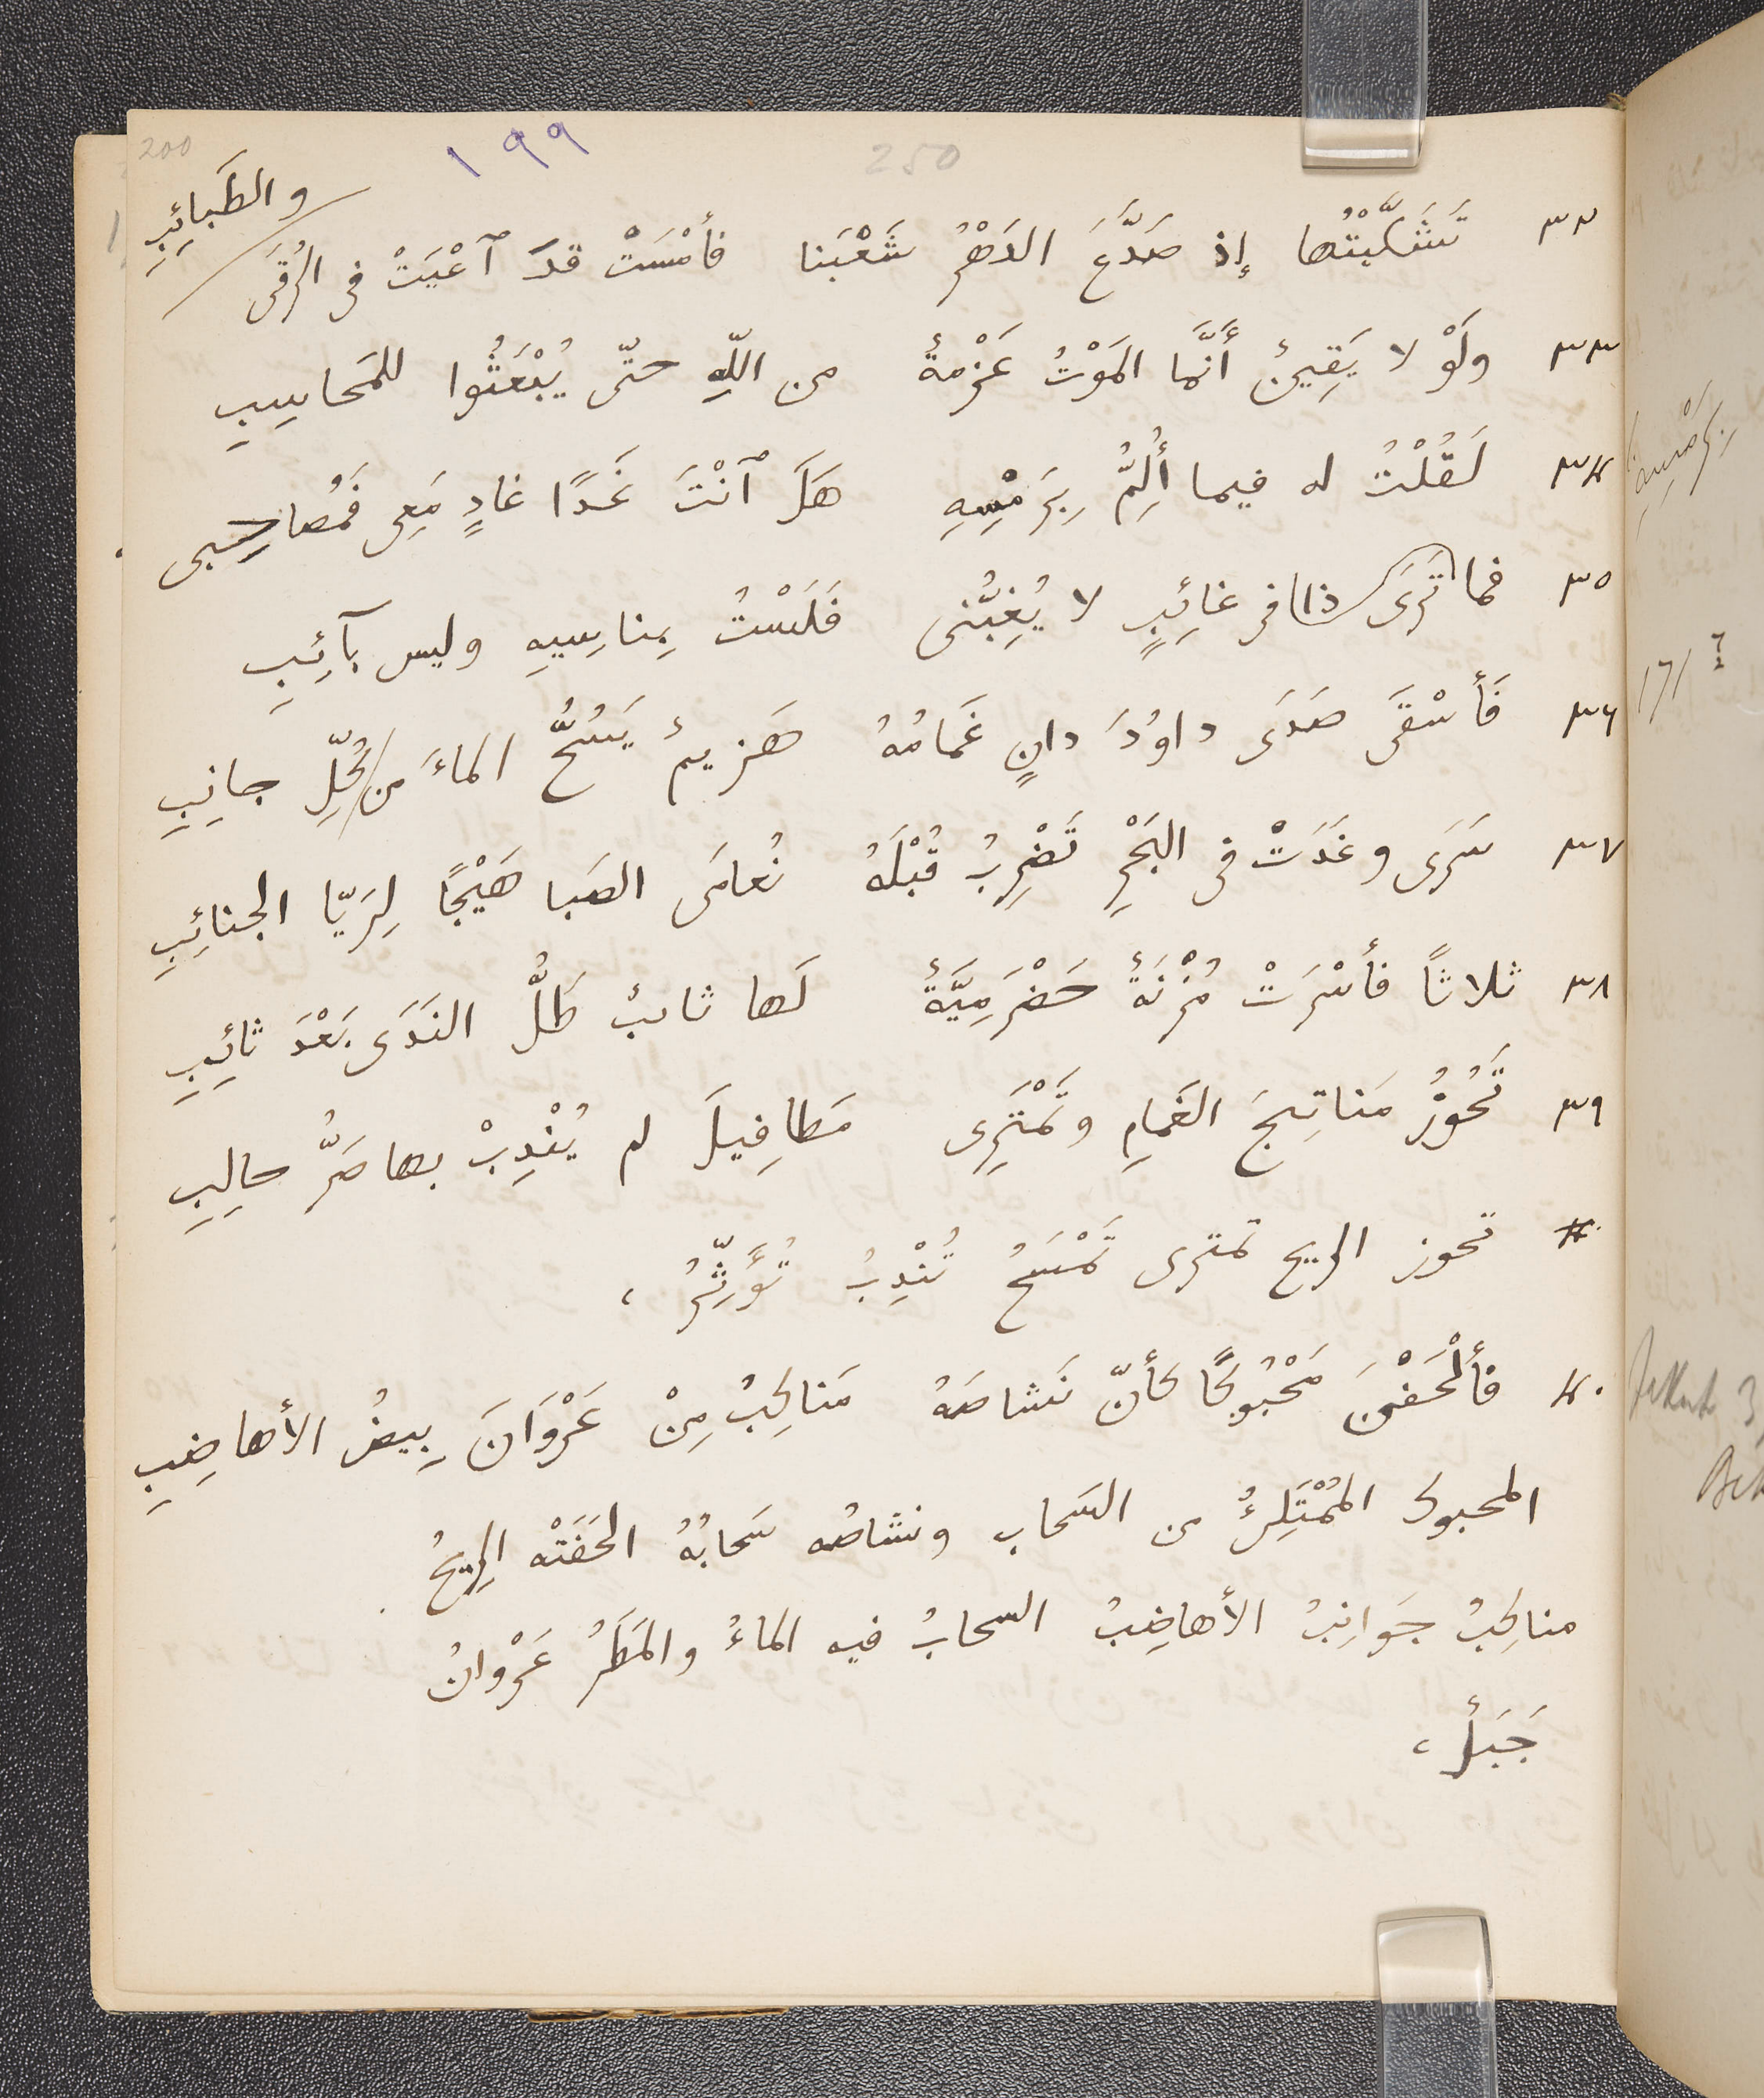 200
١٩٩
250
٣٢ تَشَكَّيْتُها إذ صَدَّعَ الدَهْرُ شَعْبَنا فأمْسَتْ قدَ ٱعْيَتْ فى الرُقَى
والطَبائِبِ
٣٣ ولَوْ لا يَقِينٌ أَنَّما المَوْتُ عَزْمةٌ من اللّهِ حتّى يُبْعَثُوا للمَحاسِبِ
٣٤ لَقُلْتُ له فيما أُلِمُّ بِرَمْسِهِ هَلَ ٱنْتَ غَدًا غادٍ مَعِى فَمُصاحِبى
٣٥ فما تَرَى ذا فى غائِبٍ لا يُغِبُّنى فَلَسْتُ بِناسِيهِ وليس بآئِبِ
٣٦ فَأسْقَى صَدَى داوُدَ دانٍ غَمامُهُ هَزيمٌ يَسُحُّ الماءَ من كُلِّ جانِبِ
٣٧ سَرَى وغَدَتْ فى البَحْرِ تَضْرِبُ قُبْلَهُ نُعامَى الصَبا هَيْجًا لِرَيّا الجنائِبِ
٣٨ ثلاثاً فأسْرَتْ مُزْنَةٌ حَضْرَمِيَّةٌ لَها ثائبٌ طَلُّ النَدَى بَعْدَ ثائِبِ
٣٩ تَحُوزُ مَناتِجَ الغَمامِ وتَمْتَرِى مَطافِيلَ لم يُنْدِبْ بها صَرُّ حالِبِ
تحوز الريح تمترى تَمْسَحُ تُنْدِبُ تُؤَثِّرُ ،
٤٠ فأَلْحَفْنَ مَحْبُوكًا كأنّ نَشاصَهُ مَناكِبُ مِنْ عَرْوَانَ بِيضُ الأهاضِبِ
المحبوك المُمْتَلِئُ من السَحاب ونشاصُه سَحابُهُ الحَفَتْه الرِيحُ
مناكِبُ جَوَانِبُ الأهاضِبُ السحابُ فيه الماءُ والمَطَرُ عَرْوانُ
جَبَلٌ ،
بِرَمْسِهِ